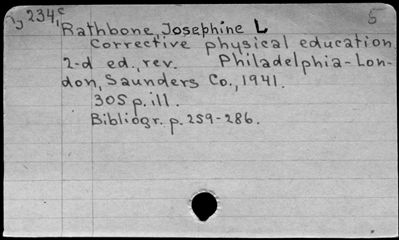 234, c 5
Rathbone, Josephine L
Corrective physical education
2-d ed., rev. Philadelphia-Lon-
don, Saunders Co., 1941.
305 p. ill.
Bibliogr. p. 259-286.